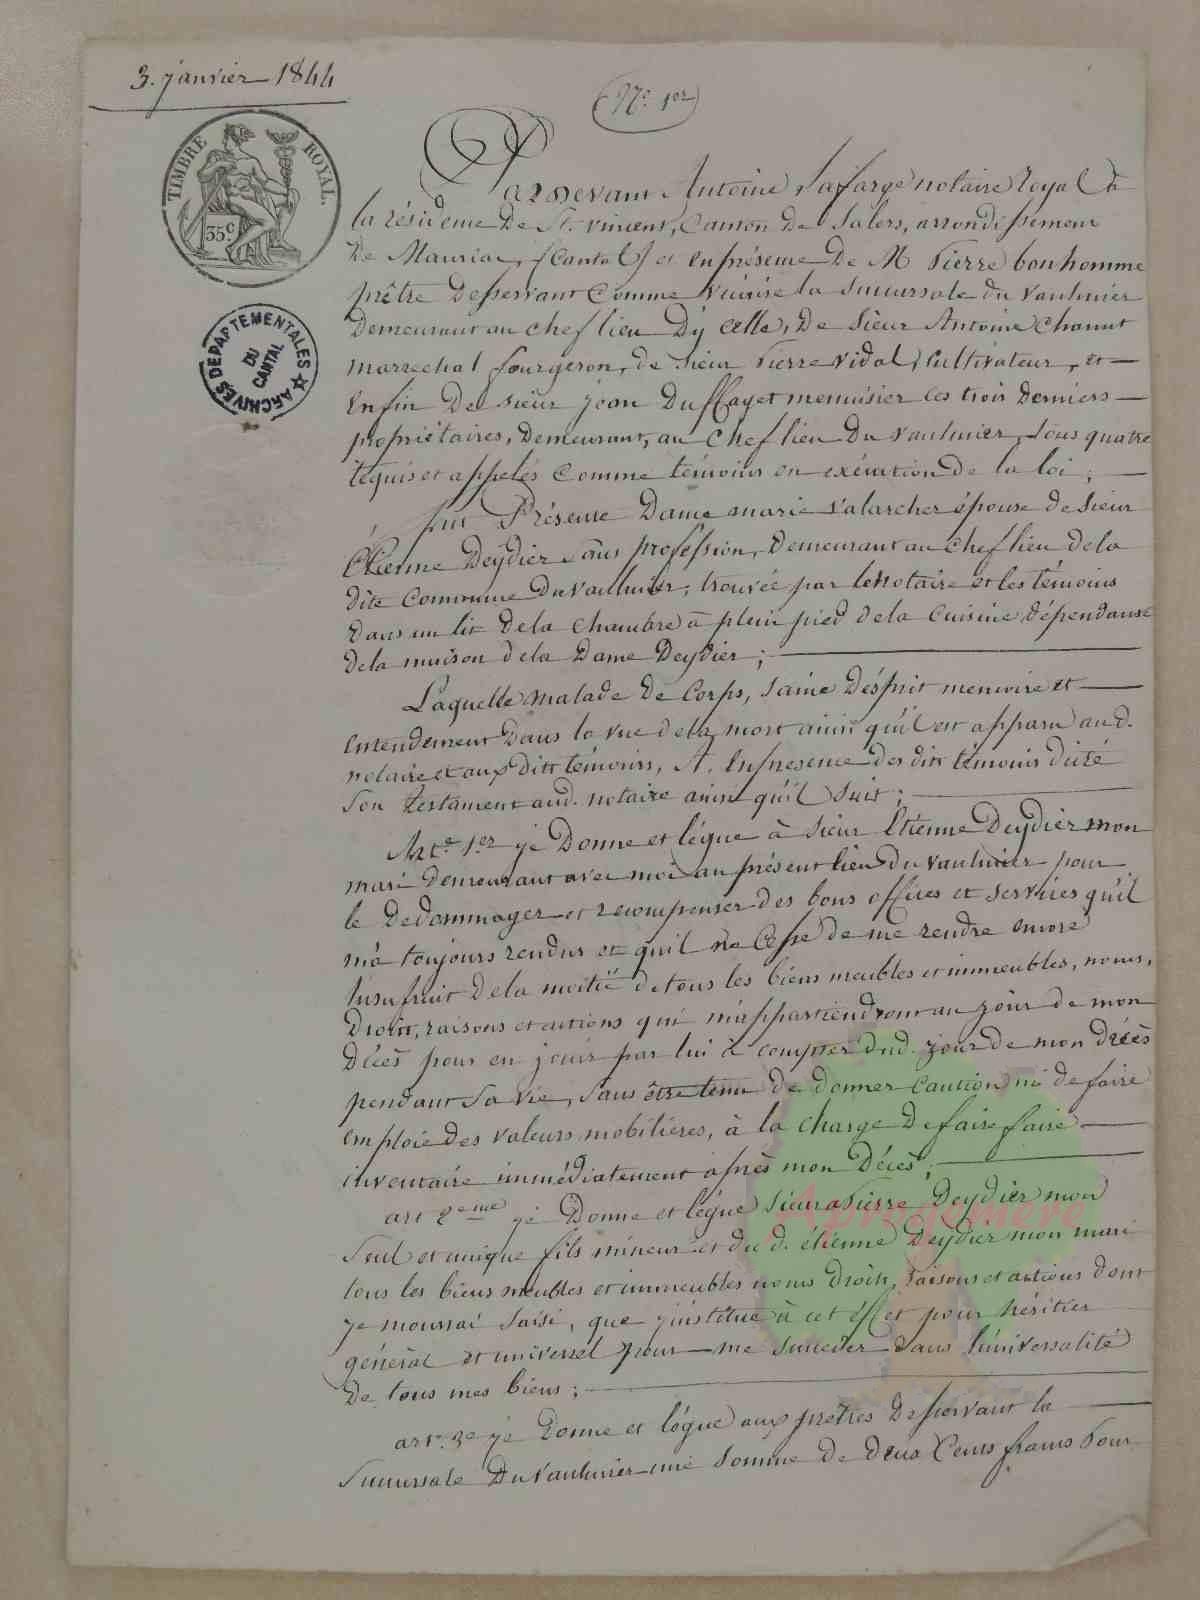 3. janvier 1844
N.o 1er
TIMBRE ROYAL.
35c
ARCHIVES DEPARTEMENTALES
DU
CANTAL
Pardevant Antoine Lafarge notaire royal à
la résidence de St. vincent, Canton de Salers, arrondissement
de Mauriac, (Cantal) et en présence de M Pierre bonhomme
prêtre desservant Comme vicaire la succursale du vaulmier
demeurant au chef lieu d'y celle, de sieur Antoine Chanut
marrechal fourgeron, de sieur Pierre vidal, Cultivateur, et
Enfin de sieur jean Duffayet menuisier les trois derniers
propriétaires, demeurant, au Chef lieu du vaulmier, tous quatre
requis et appelés Comme témoins en exécution de la loi ;
fut Présente Dame marie valarcher épouse de sieur
Etienne Deydier sans profession, demeurant au chef lieu de la
dite Commune du vaulmier, trouvée par le notaire et les témoins
dans un lit de la chambre à plein pied de la cuisine, dépendance
de la maison de la Dame Deydier ;
Laquelle malade de Corps, saine d'ésprit memoire et
entendement dans la vue de la mort ainsi qu'il est apparu aud.
notaire et aux dits témoins, A, en presence des dits témoins dicté
son testament aud. notaire ainsi qu'il suit ;
Art. 1.er je Donne et légue à sieur Etienne Deydier mon
mari demeurant avec moi au présent lieu du vaulmier pour
le dedommager et recompenser des bons offices et services qu'il
m'a toujours rendus et qu'il ne Cesse de me rendre encore
l'usufruit de la moitié de tous les biens meubles et immeubles, noms,
droits, raisons et actions qui m'appartiendront au jour de mon
décès pour en jouir par lui à compter dud. jour de mon décès
pendant sa vie, sans être tenu de donner caution ni de faire
emploi des valeurs mobilières, à la charge de faire faire
inventaire immédiatement après mon décès ;
art 2eme je Donne et légue sieur a Pierre Deydier mon
seul et unique fils mineur et du d. étienne Deydier mon mari
tous les biens meubles et immeubles noms droits, raisons et actions dont
je mourrai saisi, que j'institue à cet éffet pour héritier
général et universel pour me succéder dans l'universalité
de tous mes biens ;
art. 3e je Donne et légue aux prêtres desservant la
succursale du vaulmier une somme de deux Cents francs Pour
Aprogemere